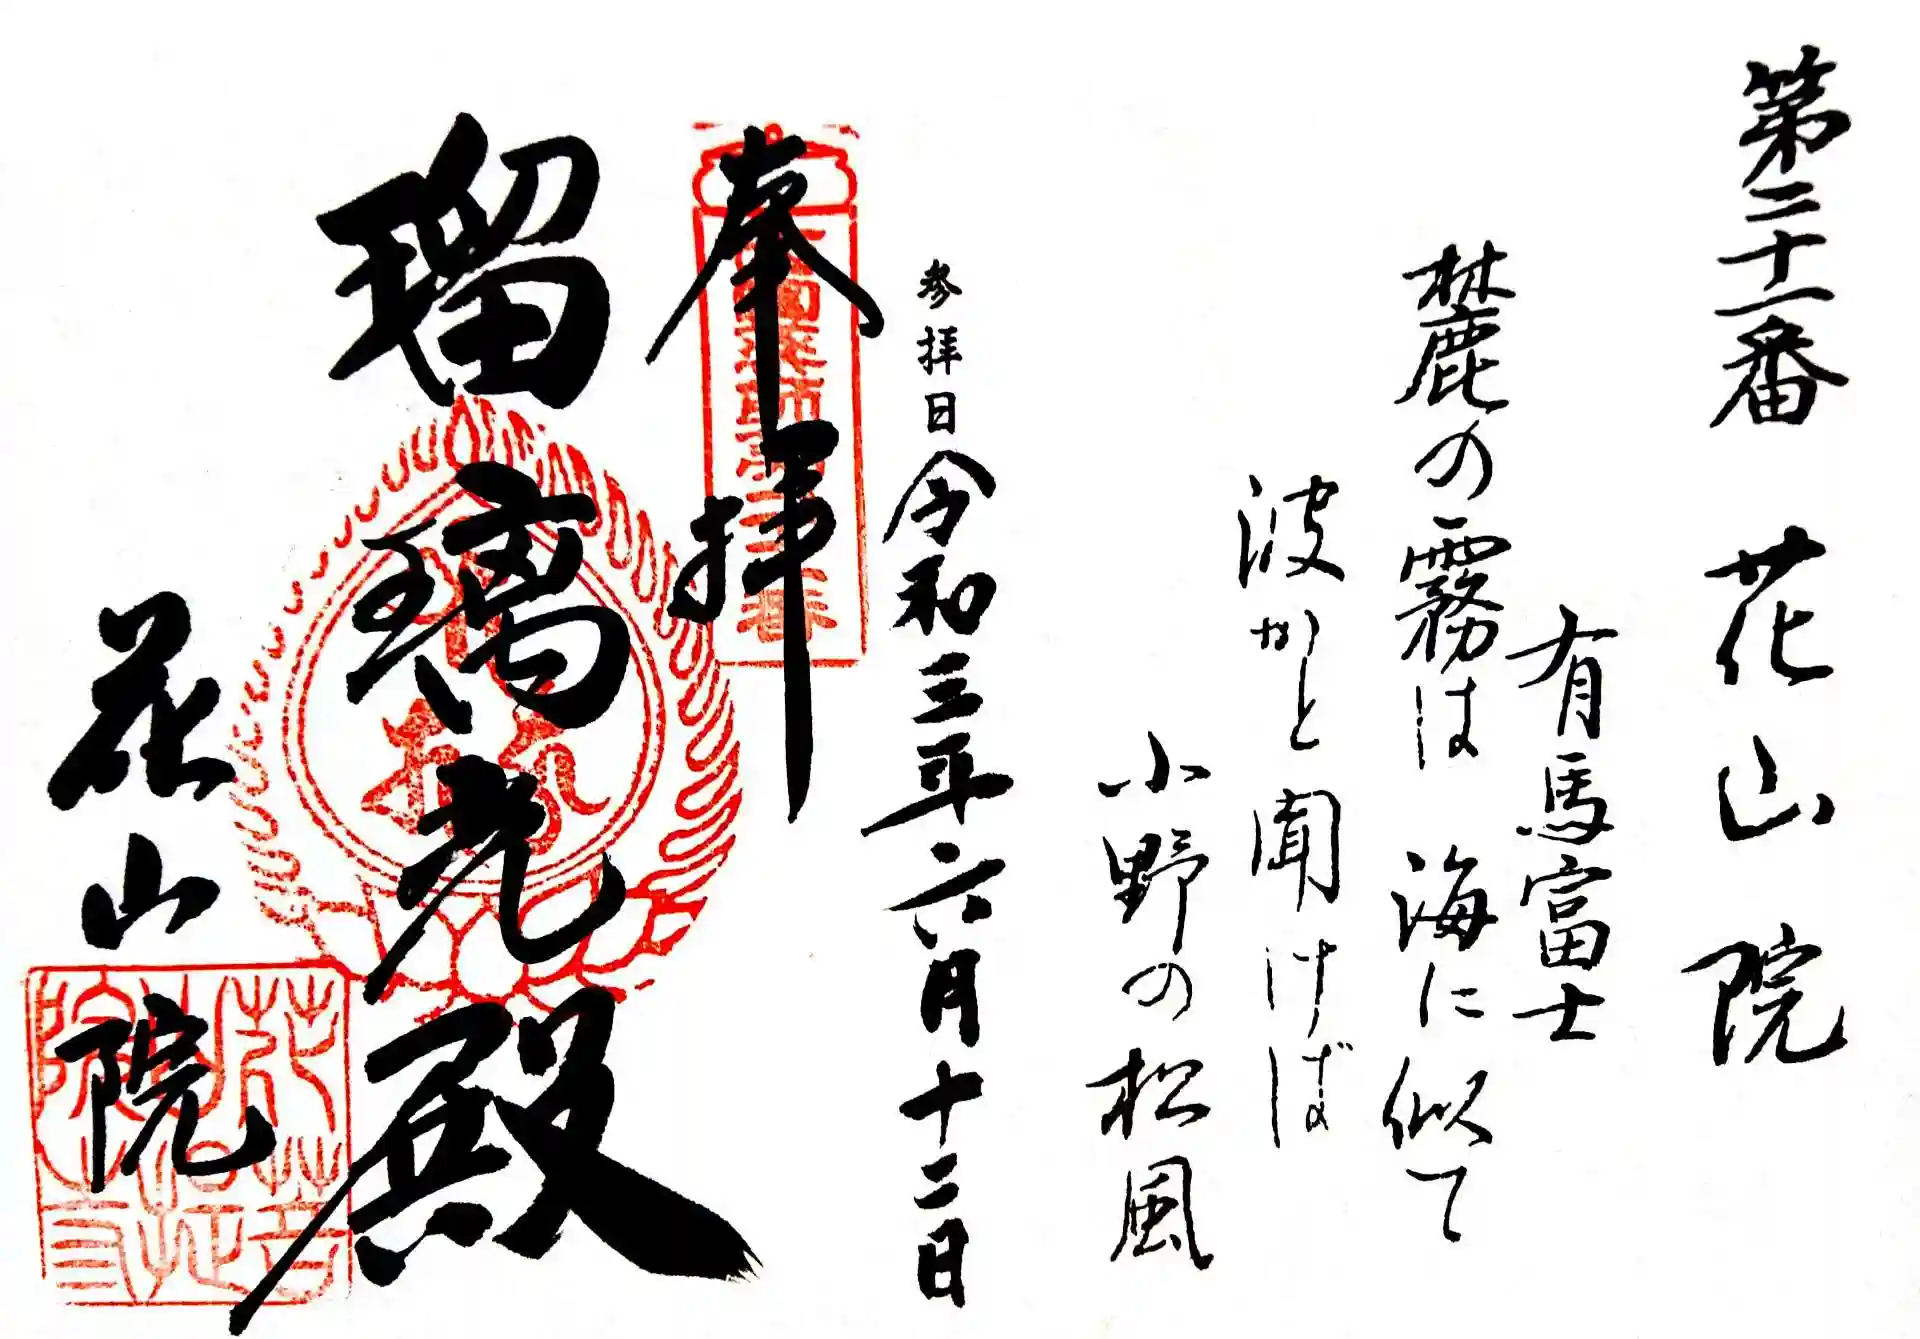 第二十一番 花山院
有馬富士
麓の霧は 海に似て
波かと聞けば
小野の松風
参拝日令和三年六月十二日
奉拝
瑠璃光殿
花山院